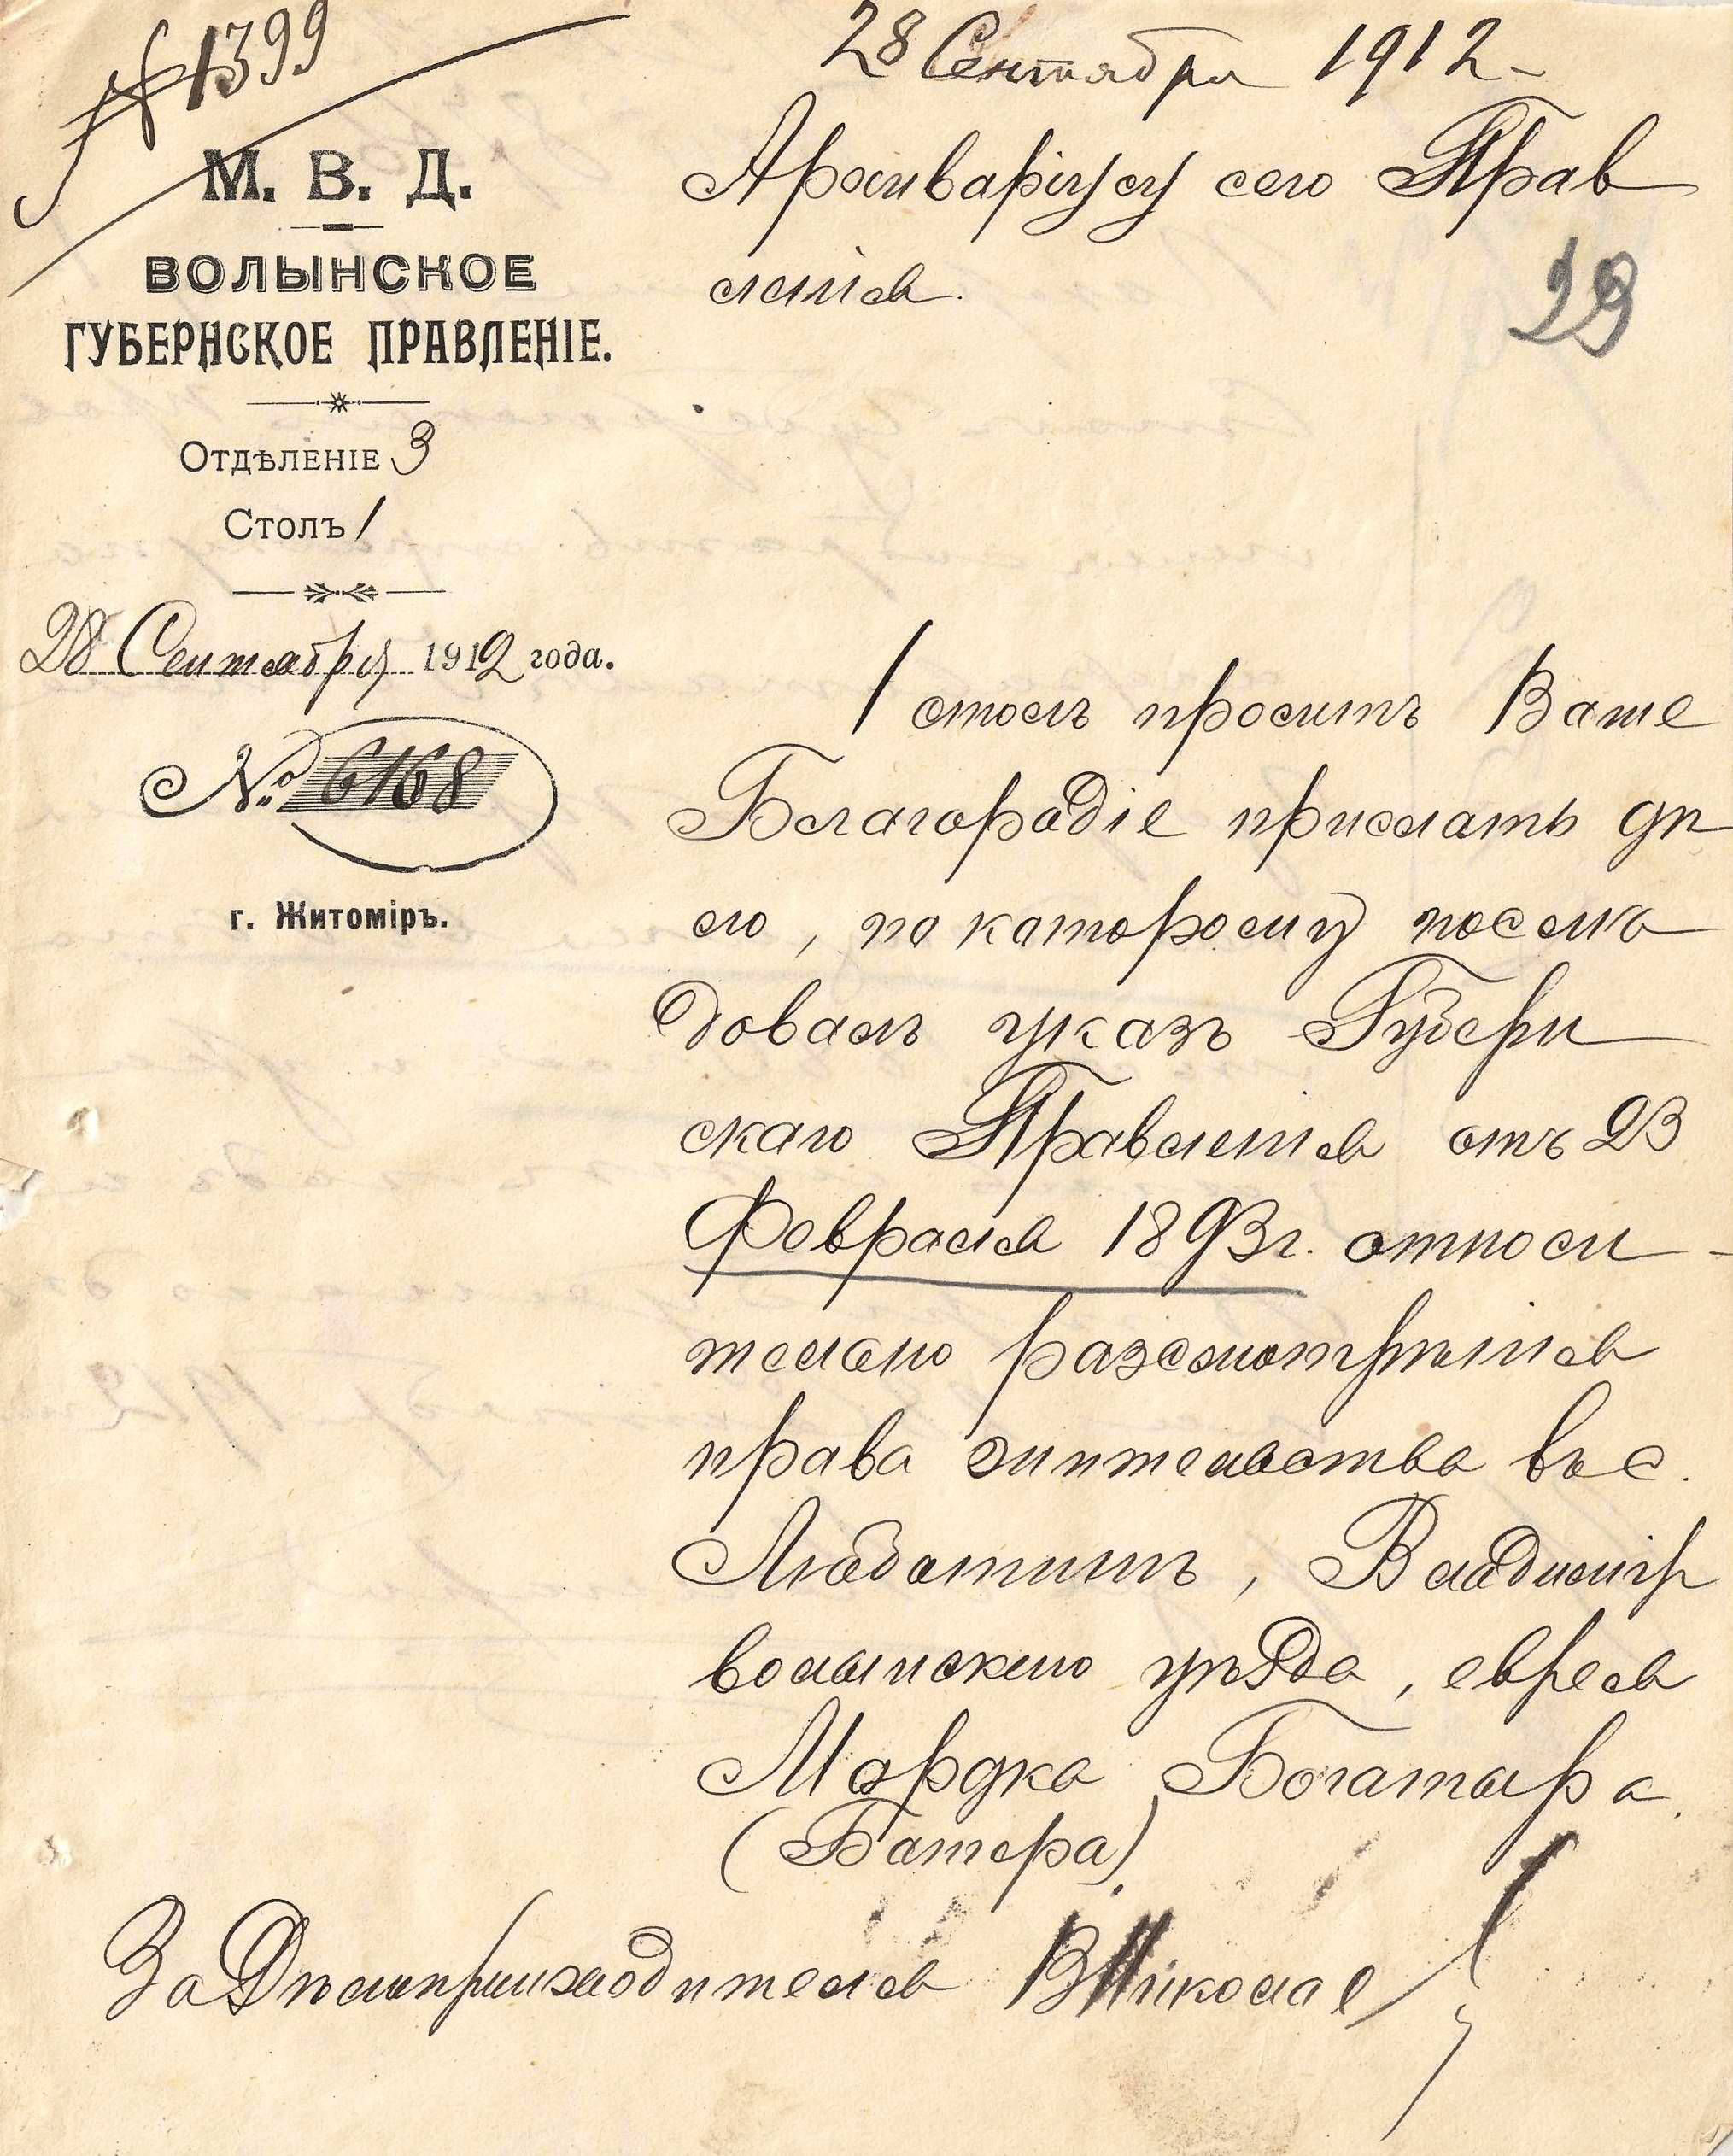 № 1399
М. В. Д.
ВОЛЫНСКОЕ
ГУБЕРНСКОЕ ПРАВЛЕНІЕ.
Отдѣленіе 3
Столъ 1
28 Сентября 1912 года.
№ 6168
г. Житоміръ.
28 Сентября 1912
Архиваріусу сего Прав
ленія.
29
1 столъ проситъ Ваше
Благородіе прислать дѣ
ло, по которому послѣ
довалъ указъ Губерн
скаго Правленія отъ 23
Февраля 1893 г. относи-
тельно разсмотрѣнія
права жительства въ с.
Любатинъ, Владимір
волынскаго уѣзда, еврея
Мордка Богатыра
(Батера)
За Дѣлопроизводителя В Николае